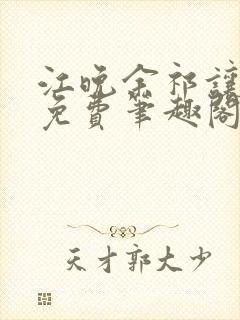 江晚余祁让
免费笔趣阁
天才郭大少